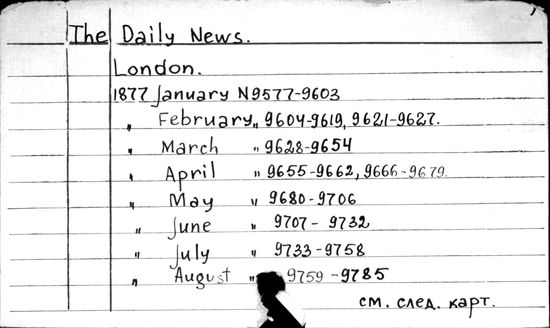 The Daily News.
London.
1877 January N9577-9603
„ February „ 9604-9619, 9621-9627.
„ March „ 9628-9654
„ April „ 9655-9662, 9666-9679.
„ May „ 9680-9706
„ June „ 9707- 9732
„ July „ 9733-9758
„ August „ 9759-9785
см. след. карт.